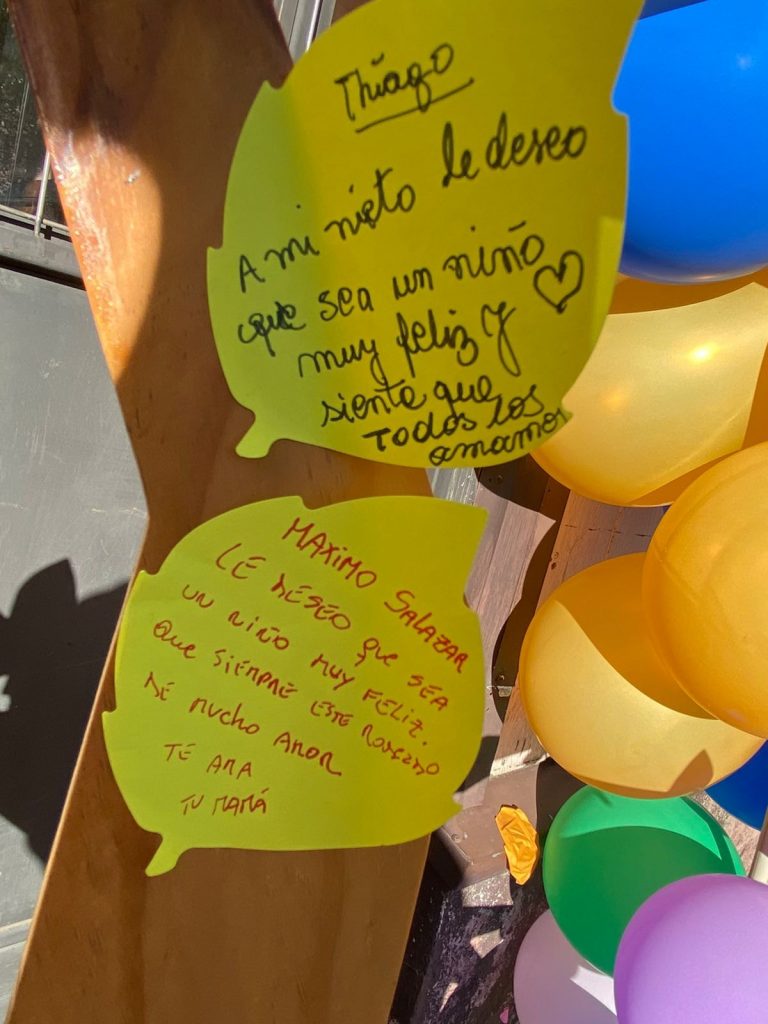 Thiago
A mi nieto le deseo
que sea un niño
muy feliz y
sienta que
todos los
amamos
MAXIMO SALAZAR
LE DESEO que SEA
UN NIÑO MUY FELIZ.
QUE SIEMPRE ESTE RODEADO
DE MUCHO AMOR
TE AMA
TU MAMÁ